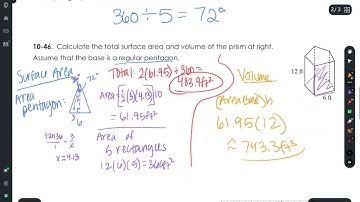 360 ÷ 5 = 72°
2/3
10-46. Calculate the total surface area and volume of the prism at right.
Assume that the base is a regular pentagon.
12 ft
6 ft
Surface Area
Area
pentagon:
72°
3
6
tan36/1 = 3/x
x ≈ 4.13
Total: 2(61.95)+360=
483.9ft²
Area=(1/2(3)(4.13))10
= 61.95ft²
Area of
5 rectangles
12(6)(5)=360ft²
Volume
(Area Base)h
61.95(12)
≈ 743.3ft³